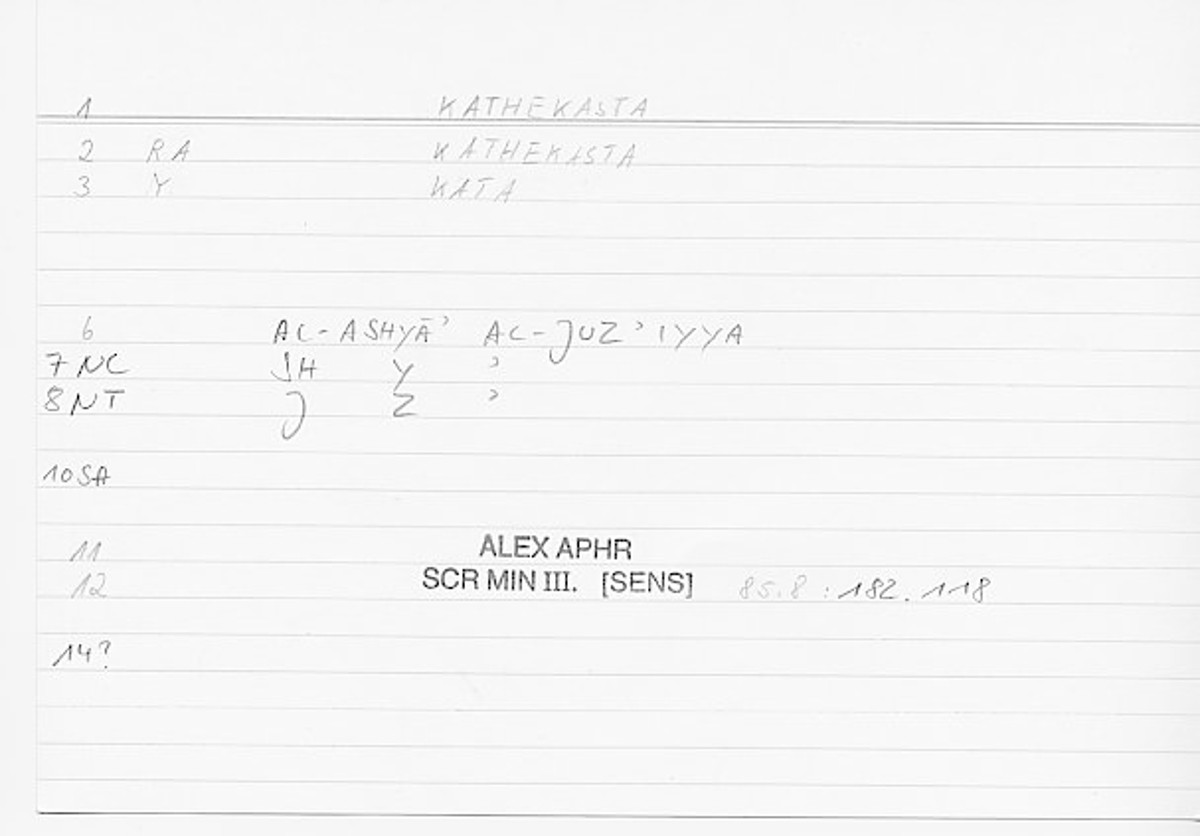 1 KATHEKASTA
2 RA KATHEKASTA
3 Y KATA
6 AL-ASHYĀʾ AL-JUZʾIYYA
7 NC JH Y ʾ
8 NT J Z ʾ
10 SA
11 ALEX APHR
12 SCR MIN III. [SENS] 85.8 : 182.118
14?